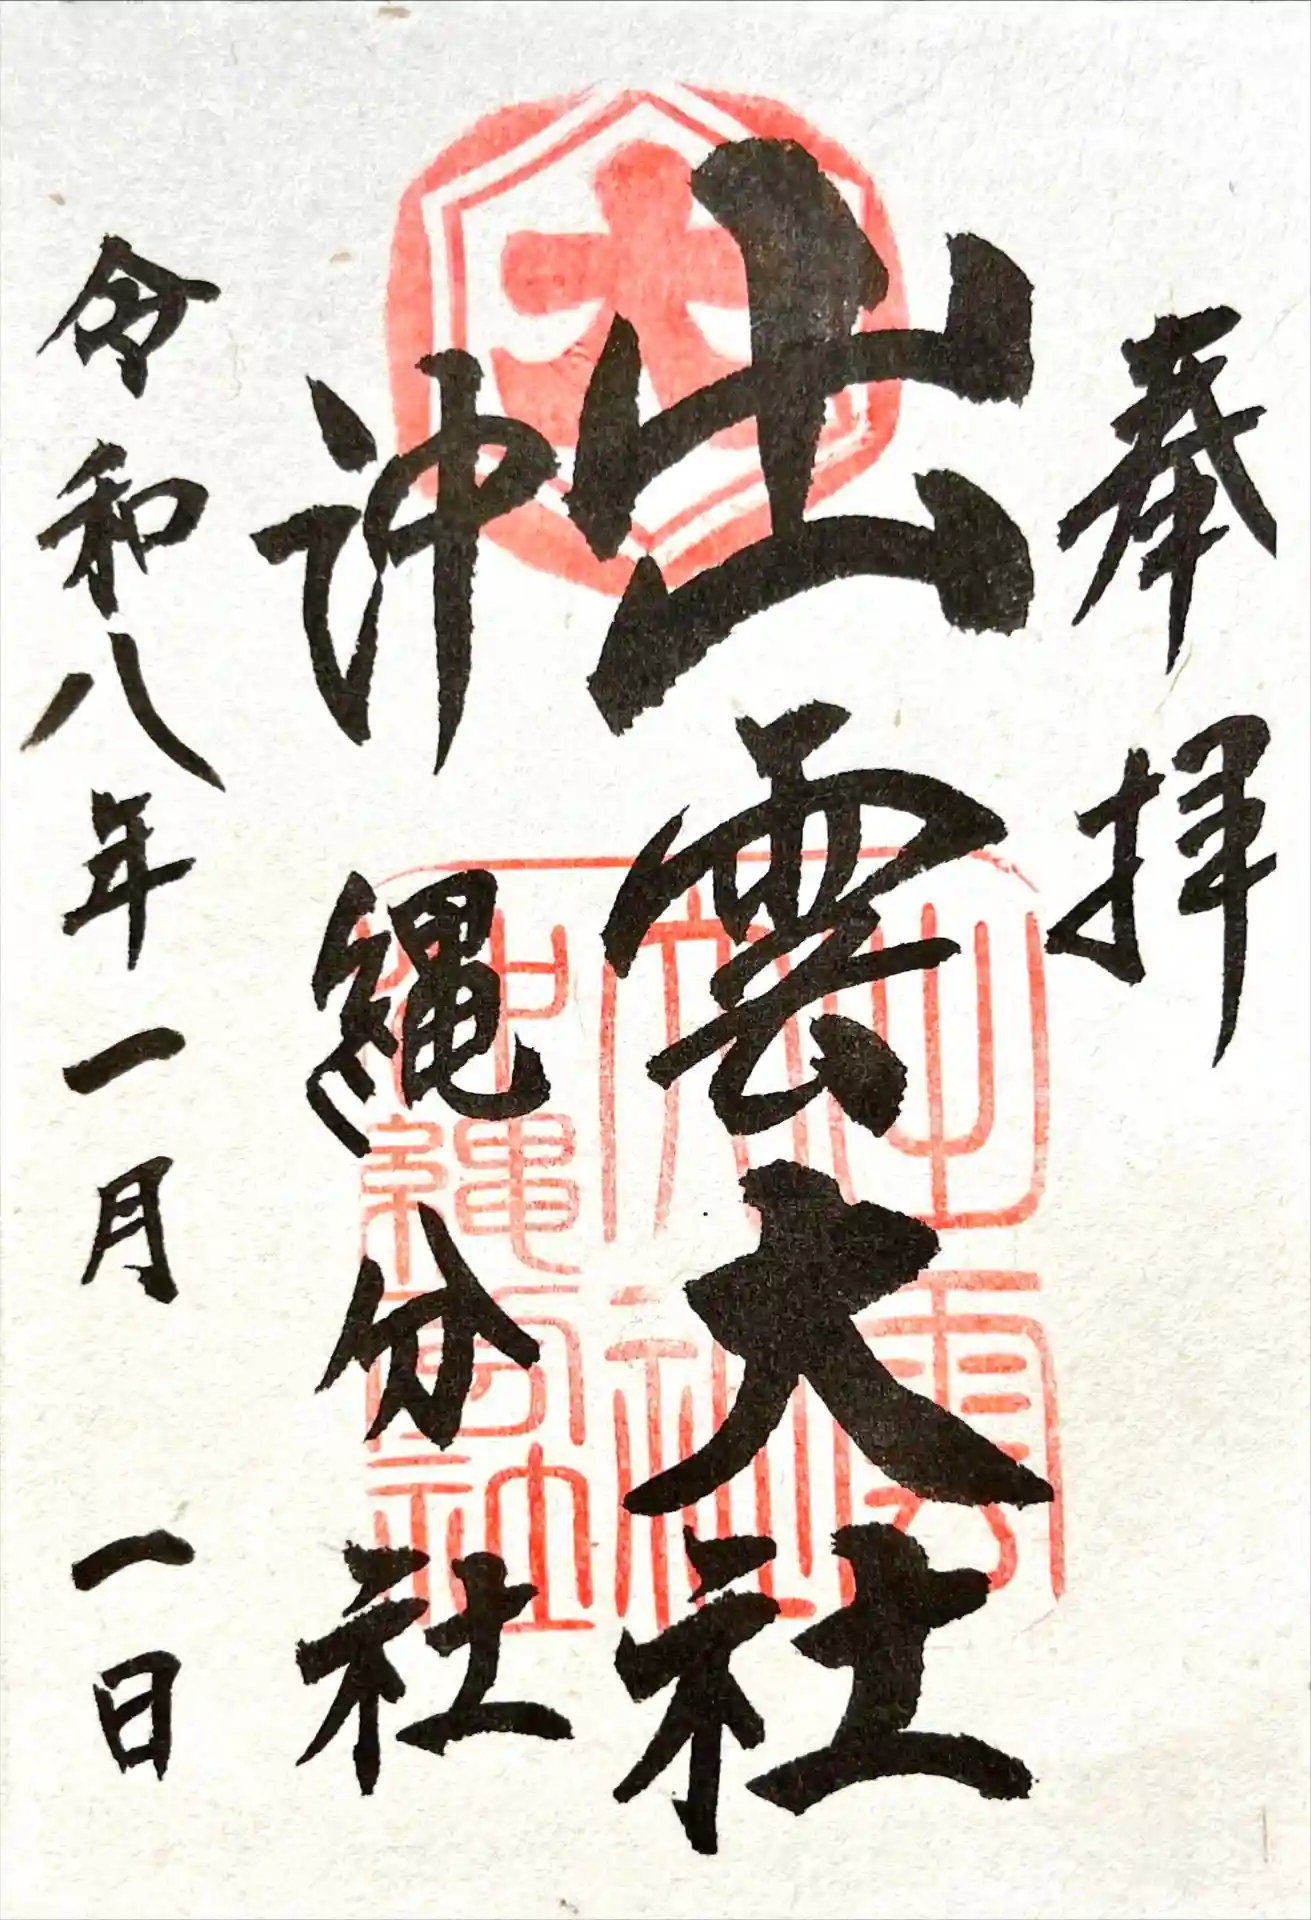 奉拝
出雲大社
沖縄分社
令和八年一月一日
大
出雲大社
沖縄分社